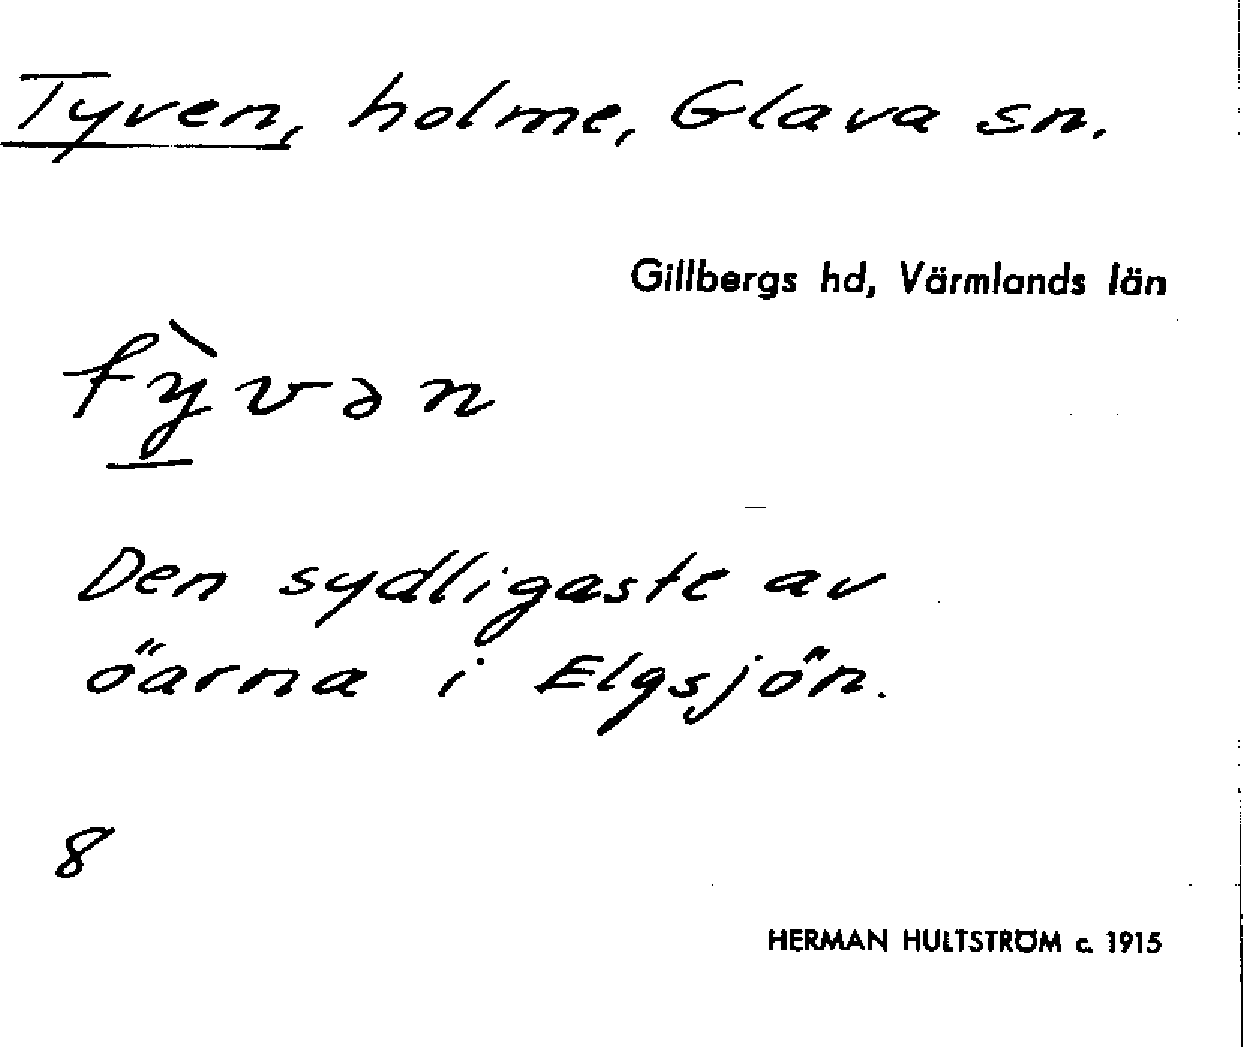 Tyven, holme, Glava sn.
Gillbergs hd, Värmlands län
fỳvən
Den sydligaste av
öarna i Elgsjön.
8
HERMAN HULTSTRÖM c. 1915